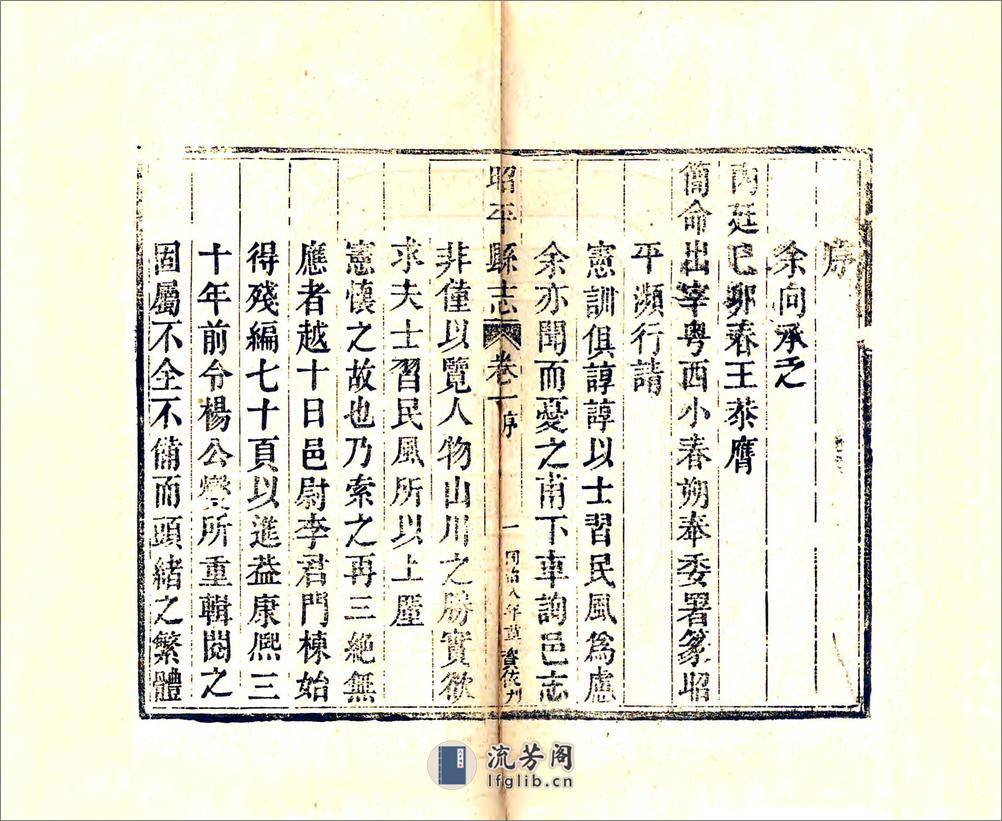 序
余向承乏
內廷己卯春王恭膺
簡命出宰粤西小春朔奉委署篆昭
平瀕行請
憲訓俱諄諄以士習民風爲慮
余亦聞而憂之甫下車詢邑志
昭平縣志 卷一序 一 同治八年 資俊刊
非僅以覽人物山川之勝實欲
求夫士習民風所以上廑
憲懷之故也乃索之再三絶無
應者越十日邑尉李君門棟始
得殘編七十頁以進葢康熈三
十年前令楊公所重輯閱之
固屬不全不備而頭緒之繁體
流芳阁
lfglib.cn